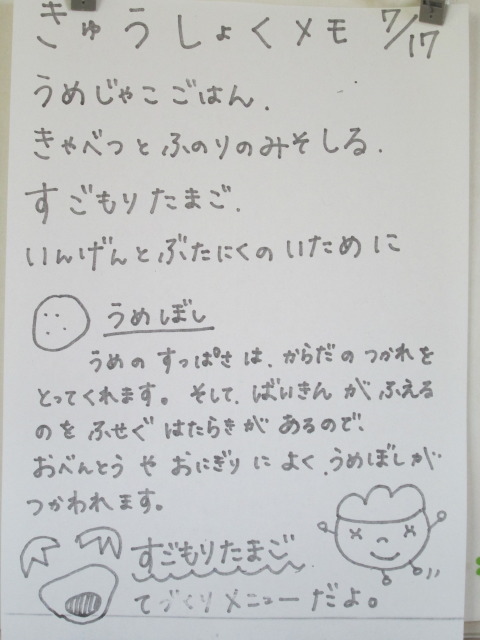 きゅうしょくメモ 7/17
うめじゃこごはん.
きゃべつとふのりのみそしる.
すごもりたまご.
いんげんとぶたにくのいために
うめぼし
うめのすっぱさは、からだのつかれを
とってくれます。そして、ばいきんがふえる
のをふせぐはたらきがあるので、
おべんとうやおにぎりによく、うめぼしが
つかわれます。
すごもりたまご
てづくりメニューだよ。